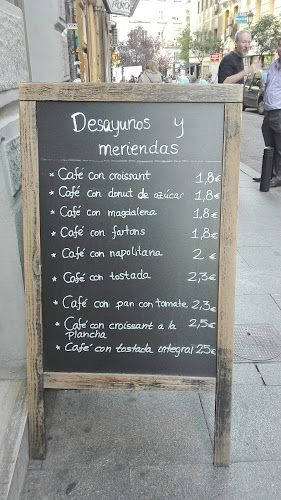 Desayunos y
meriendas
* Café con croissant 1,8€
* Café con donut de azúcar 1,8€
* Café con magdalena 1,8€
* Café con fartons 1,8€
* Café con napolitana 2 €
* Café con tostada 2,3€
* Café con pan con tomate 2,3€
* Café con croissant a la 2,5€
plancha
* Café con tostada integral 25€